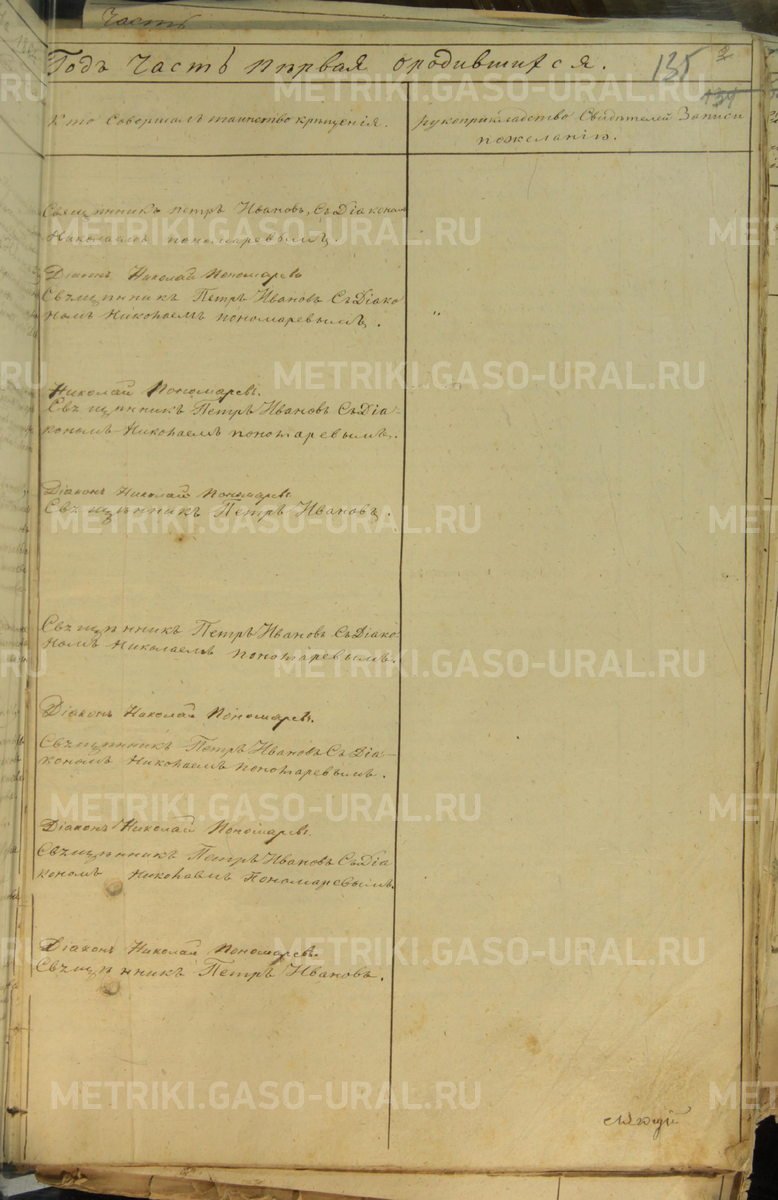 Часть
Годъ Часть первая ородившихся. 135 2
134
Кто Совершалъ таинство крещенія.
рукоприкладство Свидетелей Записи
пожеланію.
Священникъ петръ Ивановъ, Съ Діаконом
Николаемъ пономаревымъ.
Діаконъ Николай Пономаревъ
Священникъ Петръ Ивановъ Съ Діако
номъ Николаемъ пономаревымъ. "
Николай Пономаревъ.
Священникъ Петръ Ивановъ Съ Діа-
кономъ Николаемъ пономаревымъ.
Діаконъ Николай Пономаревъ
Священникъ Петръ Ивановъ.
Священникъ Петръ Ивановъ Съ Діако
номъ Николаемъ пономаревымъ.
Діаконъ Николай Пономаревъ.
Священникъ Петръ Ивановъ Съ Діа-
кономъ Николаемъ пономаревымъ.
Діаконъ Николай Пономаревъ.
Священникъ Петръ Ивановъ Съ Діа
кономъ Николаемъ Пономаревымъ.
Діаконъ Николай Пономаревъ.
Священникъ Петръ Ивановъ.
METRIKI.GASO-URAL.RU